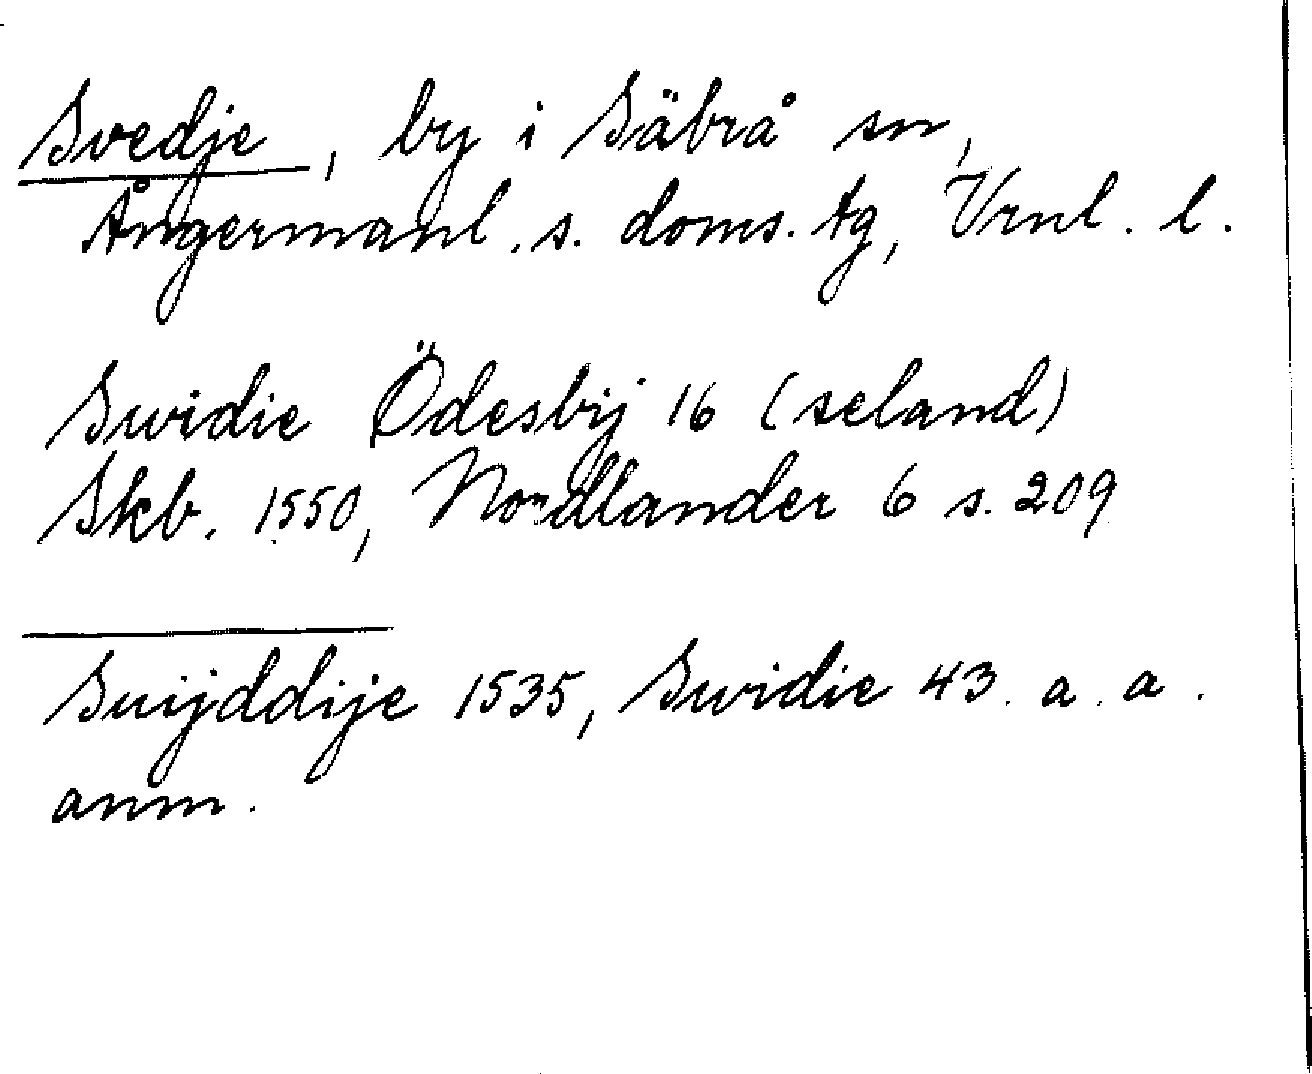 Svedje, by i Säbrå sn,
Ångermanl. s. doms. tg, Vrnl. l.
Swidie Ödesbij 16 (seland)
Skb. 1550, Nordlander 6 s. 209
Suijddije 1535, Swidie 43. a. a.
anm.